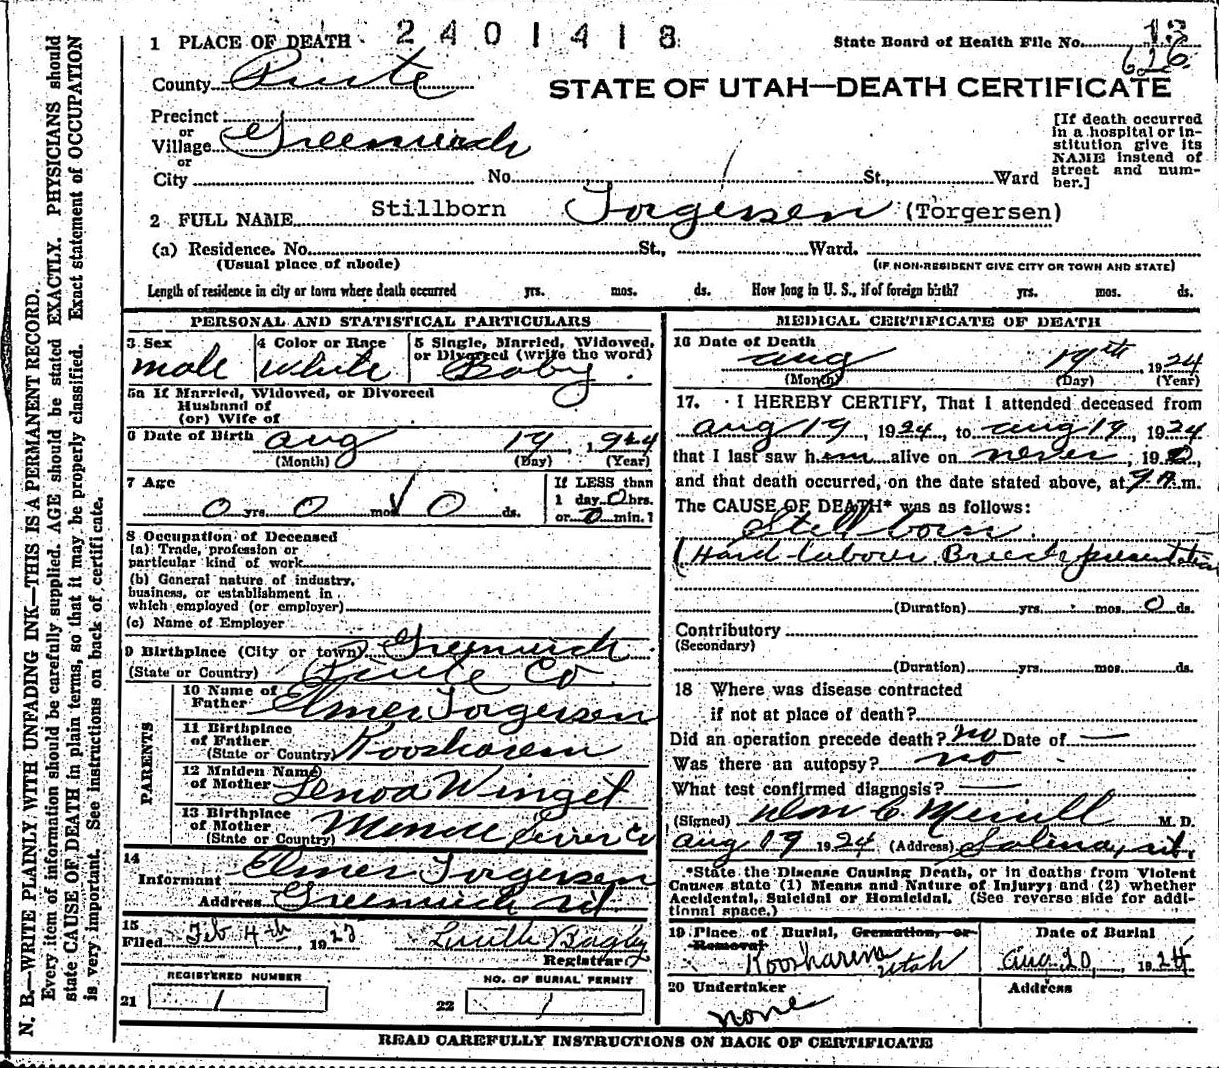 1 PLACE OF DEATH 2 4 0 1 4 1 8 State Board of Health File No. 13
626
County Piute STATE OF UTAH—DEATH CERTIFICATE
Precinct
or
Village Greenwich
or
City No. St., Ward
[If death occurred
in a hospital or in-
stitution give its
NAME instead of
street and num-
ber.]
2 FULL NAME Stillborn Torgersen (Torgersen)
(a) Residence. No. St., Ward.
(Usual place of abode) (IF NON-RESIDENT GIVE CITY OR TOWN AND STATE)
Length of residence in city or town where death occurred yrs. mos. ds. How long in U. S., if of foreign birth? yrs. mos. ds.
PERSONAL AND STATISTICAL PARTICULARS
3 Sex 4 Color or Race 5 Single, Married, Widowed,
or Divorced (write the word)
male white Baby.
5a If Married, Widowed, or Divorced
Husband of
(or) Wife of
6 Date of Birth Aug 19, 1924
(Month) (Day) (Year)
7 Age If LESS than
0 yrs. 0 mos. 0 ds. 1 day 0 hrs.
or 0 min.?
8 Occupation of Deceased
(a) Trade, profession or
particular kind of work
(b) General nature of industry,
business, or establishment in
which employed (or employer)
(c) Name of Employer
9 Birthplace (City or town) Greenwich
(State or Country) Piute Co
PARENTS
10 Name of
Father Elmer Torgersen
11 Birthplace
of Father
(State or Country) Koosharem
12 Maiden Name
of Mother Lenoa Winget
13 Birthplace
of Mother
(State or Country) Monroe Sevier Co
14
Informant Elmer Torgersen
Address Greenwich Ut
15
Filed Feb 4th, 1925 Lucille Bagley
Registrar
REGISTERED NUMBER NO. OF BURIAL PERMIT
21 1 22 1
MEDICAL CERTIFICATE OF DEATH
16 Date of Death
Aug 19th, 1924
(Month) (Day) (Year)
17. I HEREBY CERTIFY, That I attended deceased from
Aug 19, 1924, to Aug 19, 1924
that I last saw h em alive on never, 19 0,
and that death occurred, on the date stated above, at 9 A. m.
The CAUSE OF DEATH* was as follows:
Stillborn
(Hard labour Breech presentation
(Duration) yrs. mos. 0 ds.
Contributory
(Secondary)
(Duration) yrs. mos. ds.
18 Where was disease contracted
if not at place of death?
Did an operation precede death? no Date of —
Was there an autopsy? no
What test confirmed diagnosis? —
(Signed) C Merrill M. D.
Aug 19 1924 (Address) Salina, Ut.
*State the Disease Causing Death, or in deaths from Violent
Causes state (1) Means and Nature of Injury; and (2) whether
Accidental, Suicidal or Homicidal. (See reverse side for addi-
tional space.)
19 Place of Burial, Cremation, or Date of Burial
Removal
Koosharem Utah Aug 20, 1924
20 Undertaker Address
none
READ CAREFULLY INSTRUCTIONS ON BACK OF CERTIFICATE
N. B.—WRITE PLAINLY WITH UNFADING INK—THIS IS A PERMANENT RECORD.
Every item of information should be carefully supplied. AGE should be stated EXACTLY. PHYSICIANS should
state CAUSE OF DEATH in plain terms, so that it may be properly classified. Exact statement of OCCUPATION
is very important. See instructions on back of certificate.